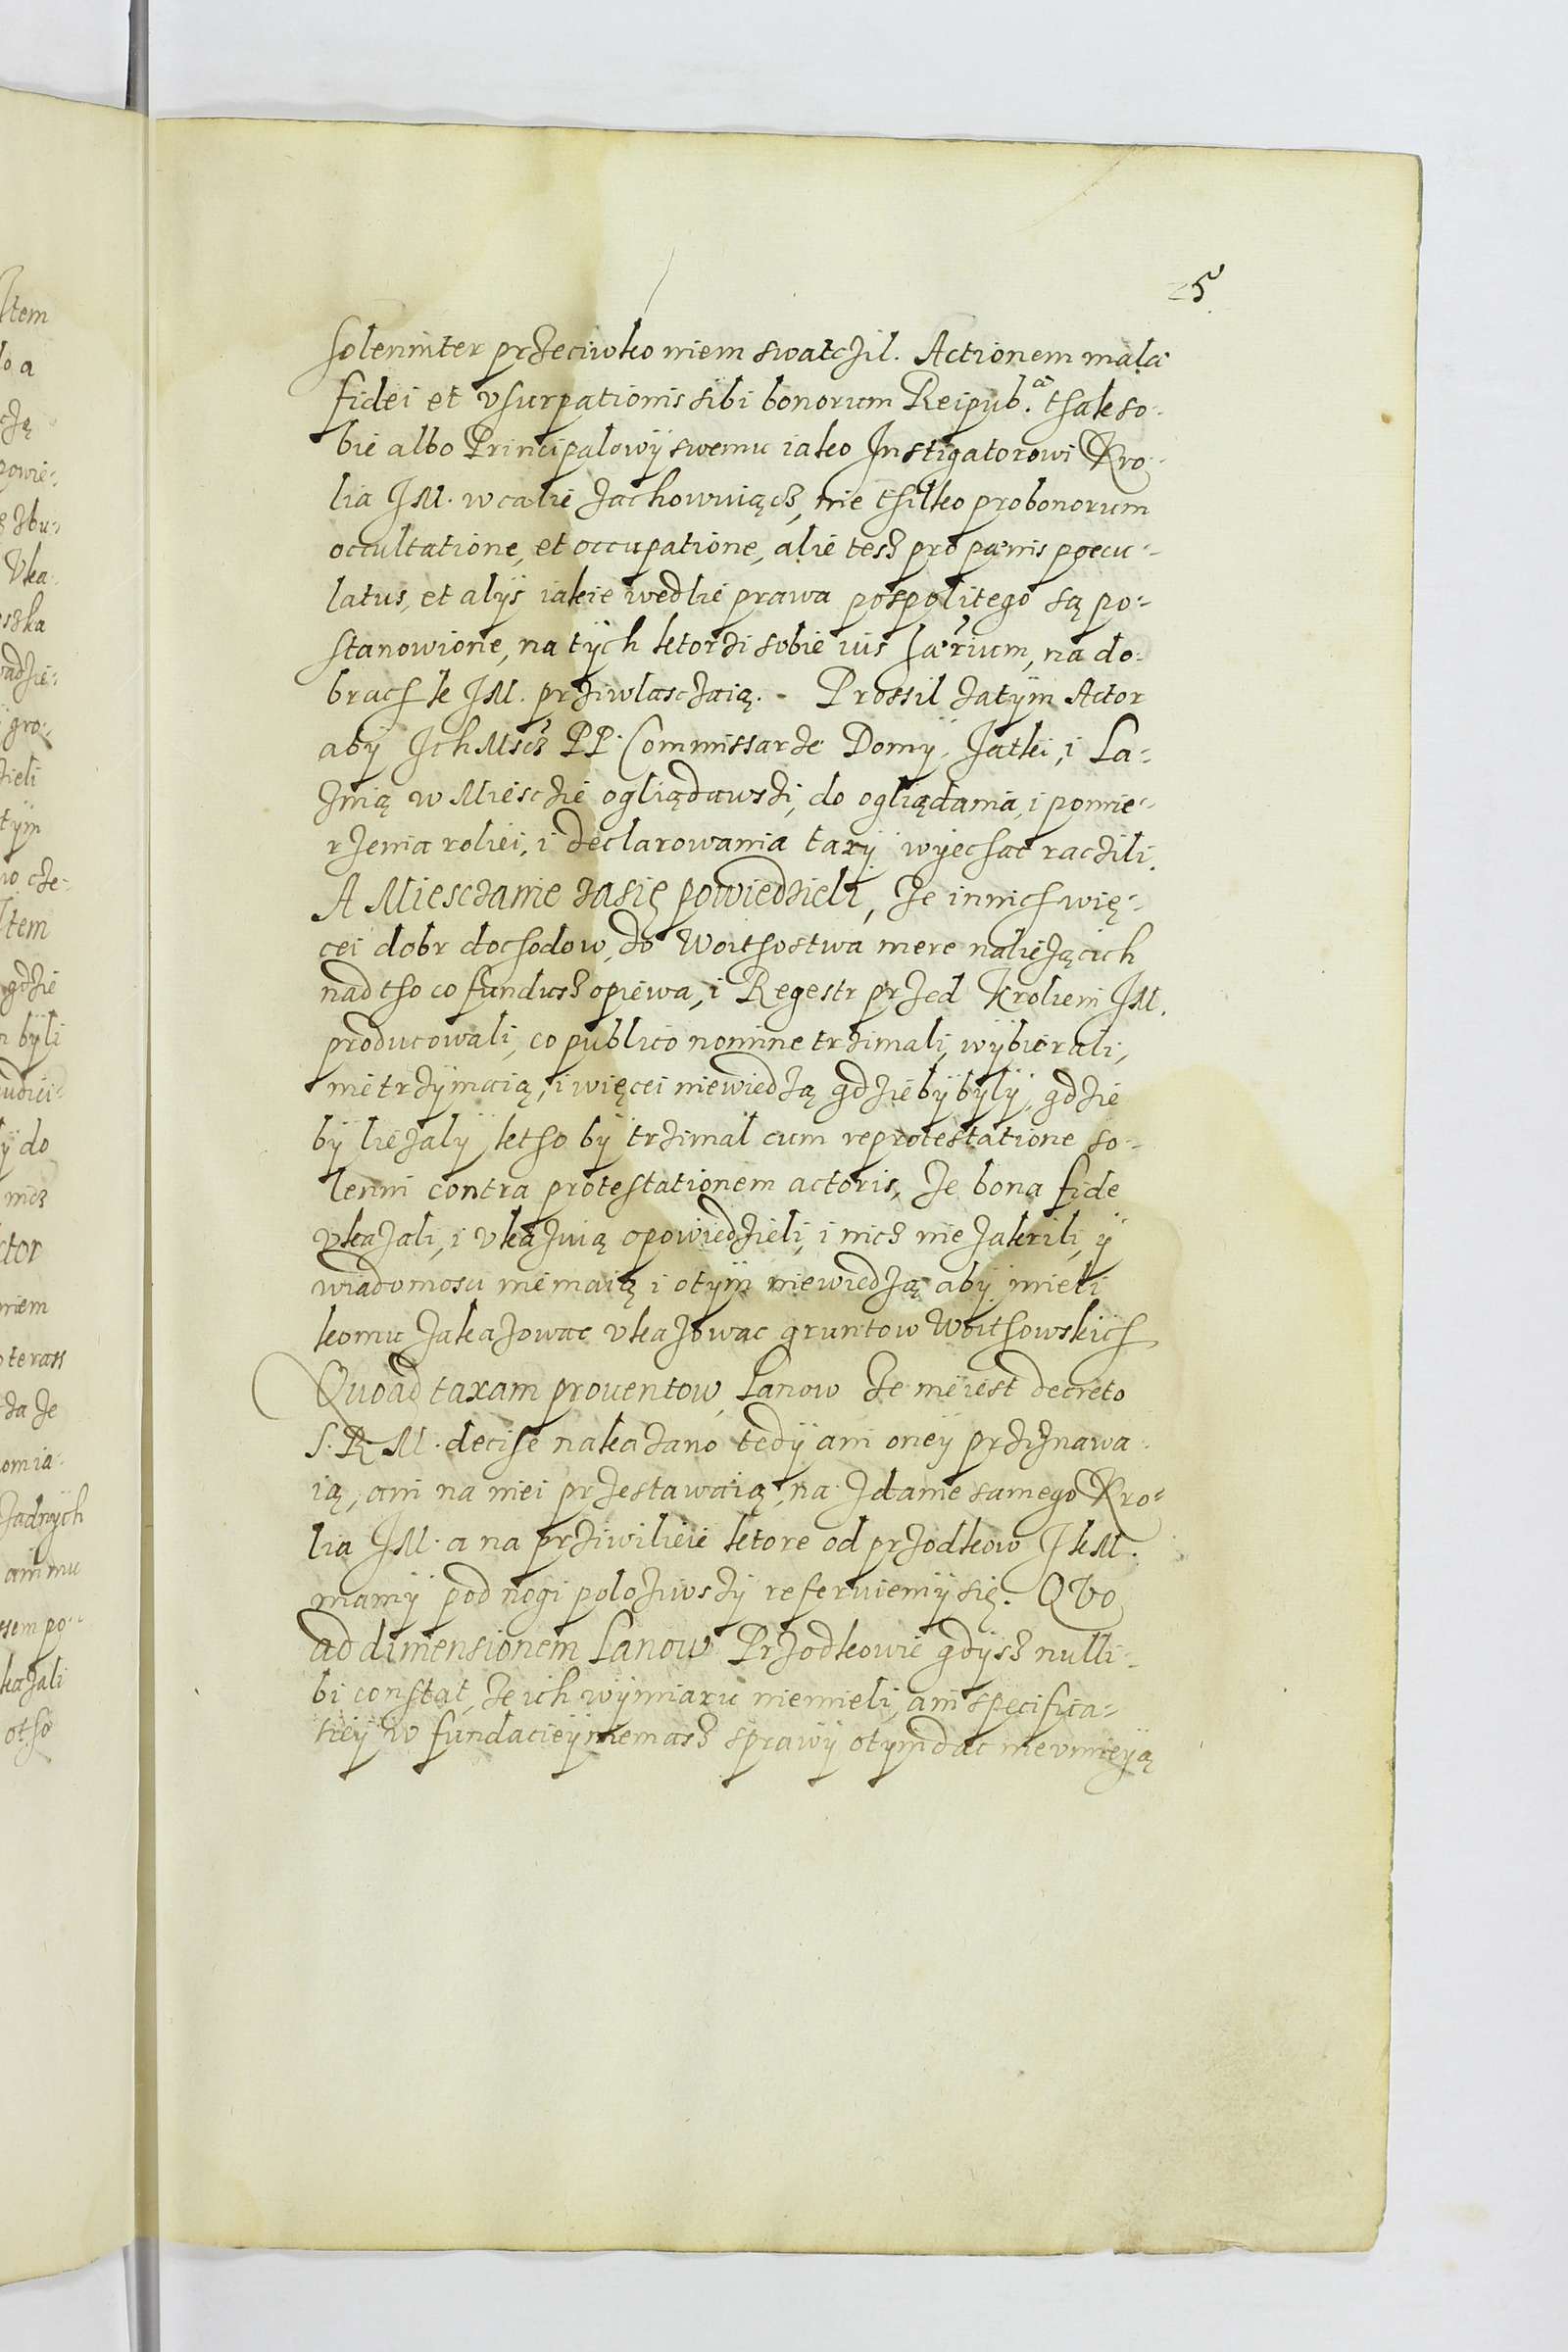 25
solenniter przeciwko niem swatczil. Actionem malæ
fidei et vsurpationis sibi bonorum Reipub.ca tsak so-
bie albo Principalowÿ swemu iako Instigatorowi Kro-
lia JM. w calie zachowuiącz, nie tsilko pro bonorum
occultatione, et occupatione, alie tesz pro pænis pecu-
latus, et alÿs iakie wedlie prawa pospolitego są po-
stanowione, na tÿch ktorzi sobie ius
brach k JM. prziwlasczaią. - Prossil zatÿm Actor
abÿ Jch Mscz PP. Commissarze Domÿ, Jatki, i La-
znią w Miesczie ogliądawszi, do ogliądania, i pomie-
rzenia roliei, i declarowania taxÿ wÿiechac raczili.
A Miesczanie zasię powiedzieli, ze innich wię-
cei dobr dochodow, do Woithostwa mere naliezącich
nad tho co fundusz opiewa, i Regestr przed Kroliem JM.
producowali, co publico nomine trzimali, wÿbierali,
nie trzÿmaią, i więcei niewiedzą gdzie bÿ bÿlÿ, gdzie
bÿ liezalÿ ktho bÿ trzimal cum reprotestatione so-
lenni contra protestationem actoris, ze bona fide
vkazali, i vkazuią opowiedzieli, i nicz nie zakrili, ÿ
wiadomosci nie maią i o tÿm niewiedzą abÿ mieli
komu zakazowac vkazowac gruntow Woithowskich
Quoad taxam prouentow, Lanow ze nie iest decreto
S. R. M. decise nakazano tedÿ ani oneÿ prziznawa-
ią, ani na niei przestawaią, na zdanie samego Kro-
lia JM. a na prziwilieie ktore od przodkow J k M.
mamÿ pod nogi polozÿwszÿ referuiemÿ się. Qvo
ad dimensionem Lanow Przodkowie gdÿsz nulli-
bi constat, ze ich wÿmiaru niemieli, ani specifica-
tieÿ w fundacieÿ niemasz sprawÿ o tÿm dac nievmieÿą